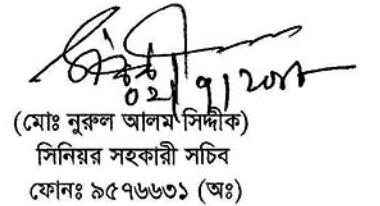 (মোঃ নুরুল আলম সিদ্দীক)
সিনিয়র সহকারী সচিব
ফোনঃ ৯৫৭৬৬৩১ (অঃ)